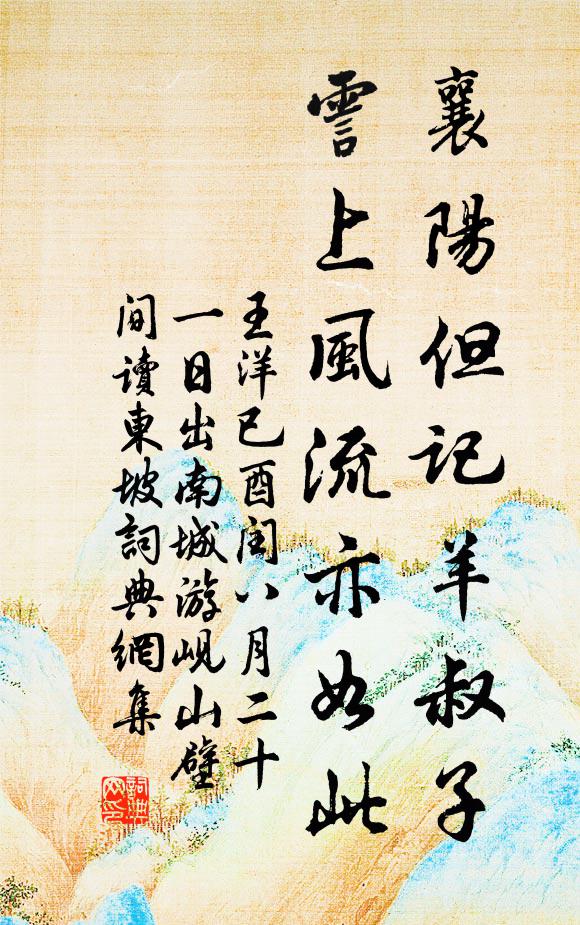 襄陽但記羊叔子
霅上風流亦如此
王洋已酉閏八月二十
一日出南城游峴山壁
間讀東坡詞典網集
詞典網印